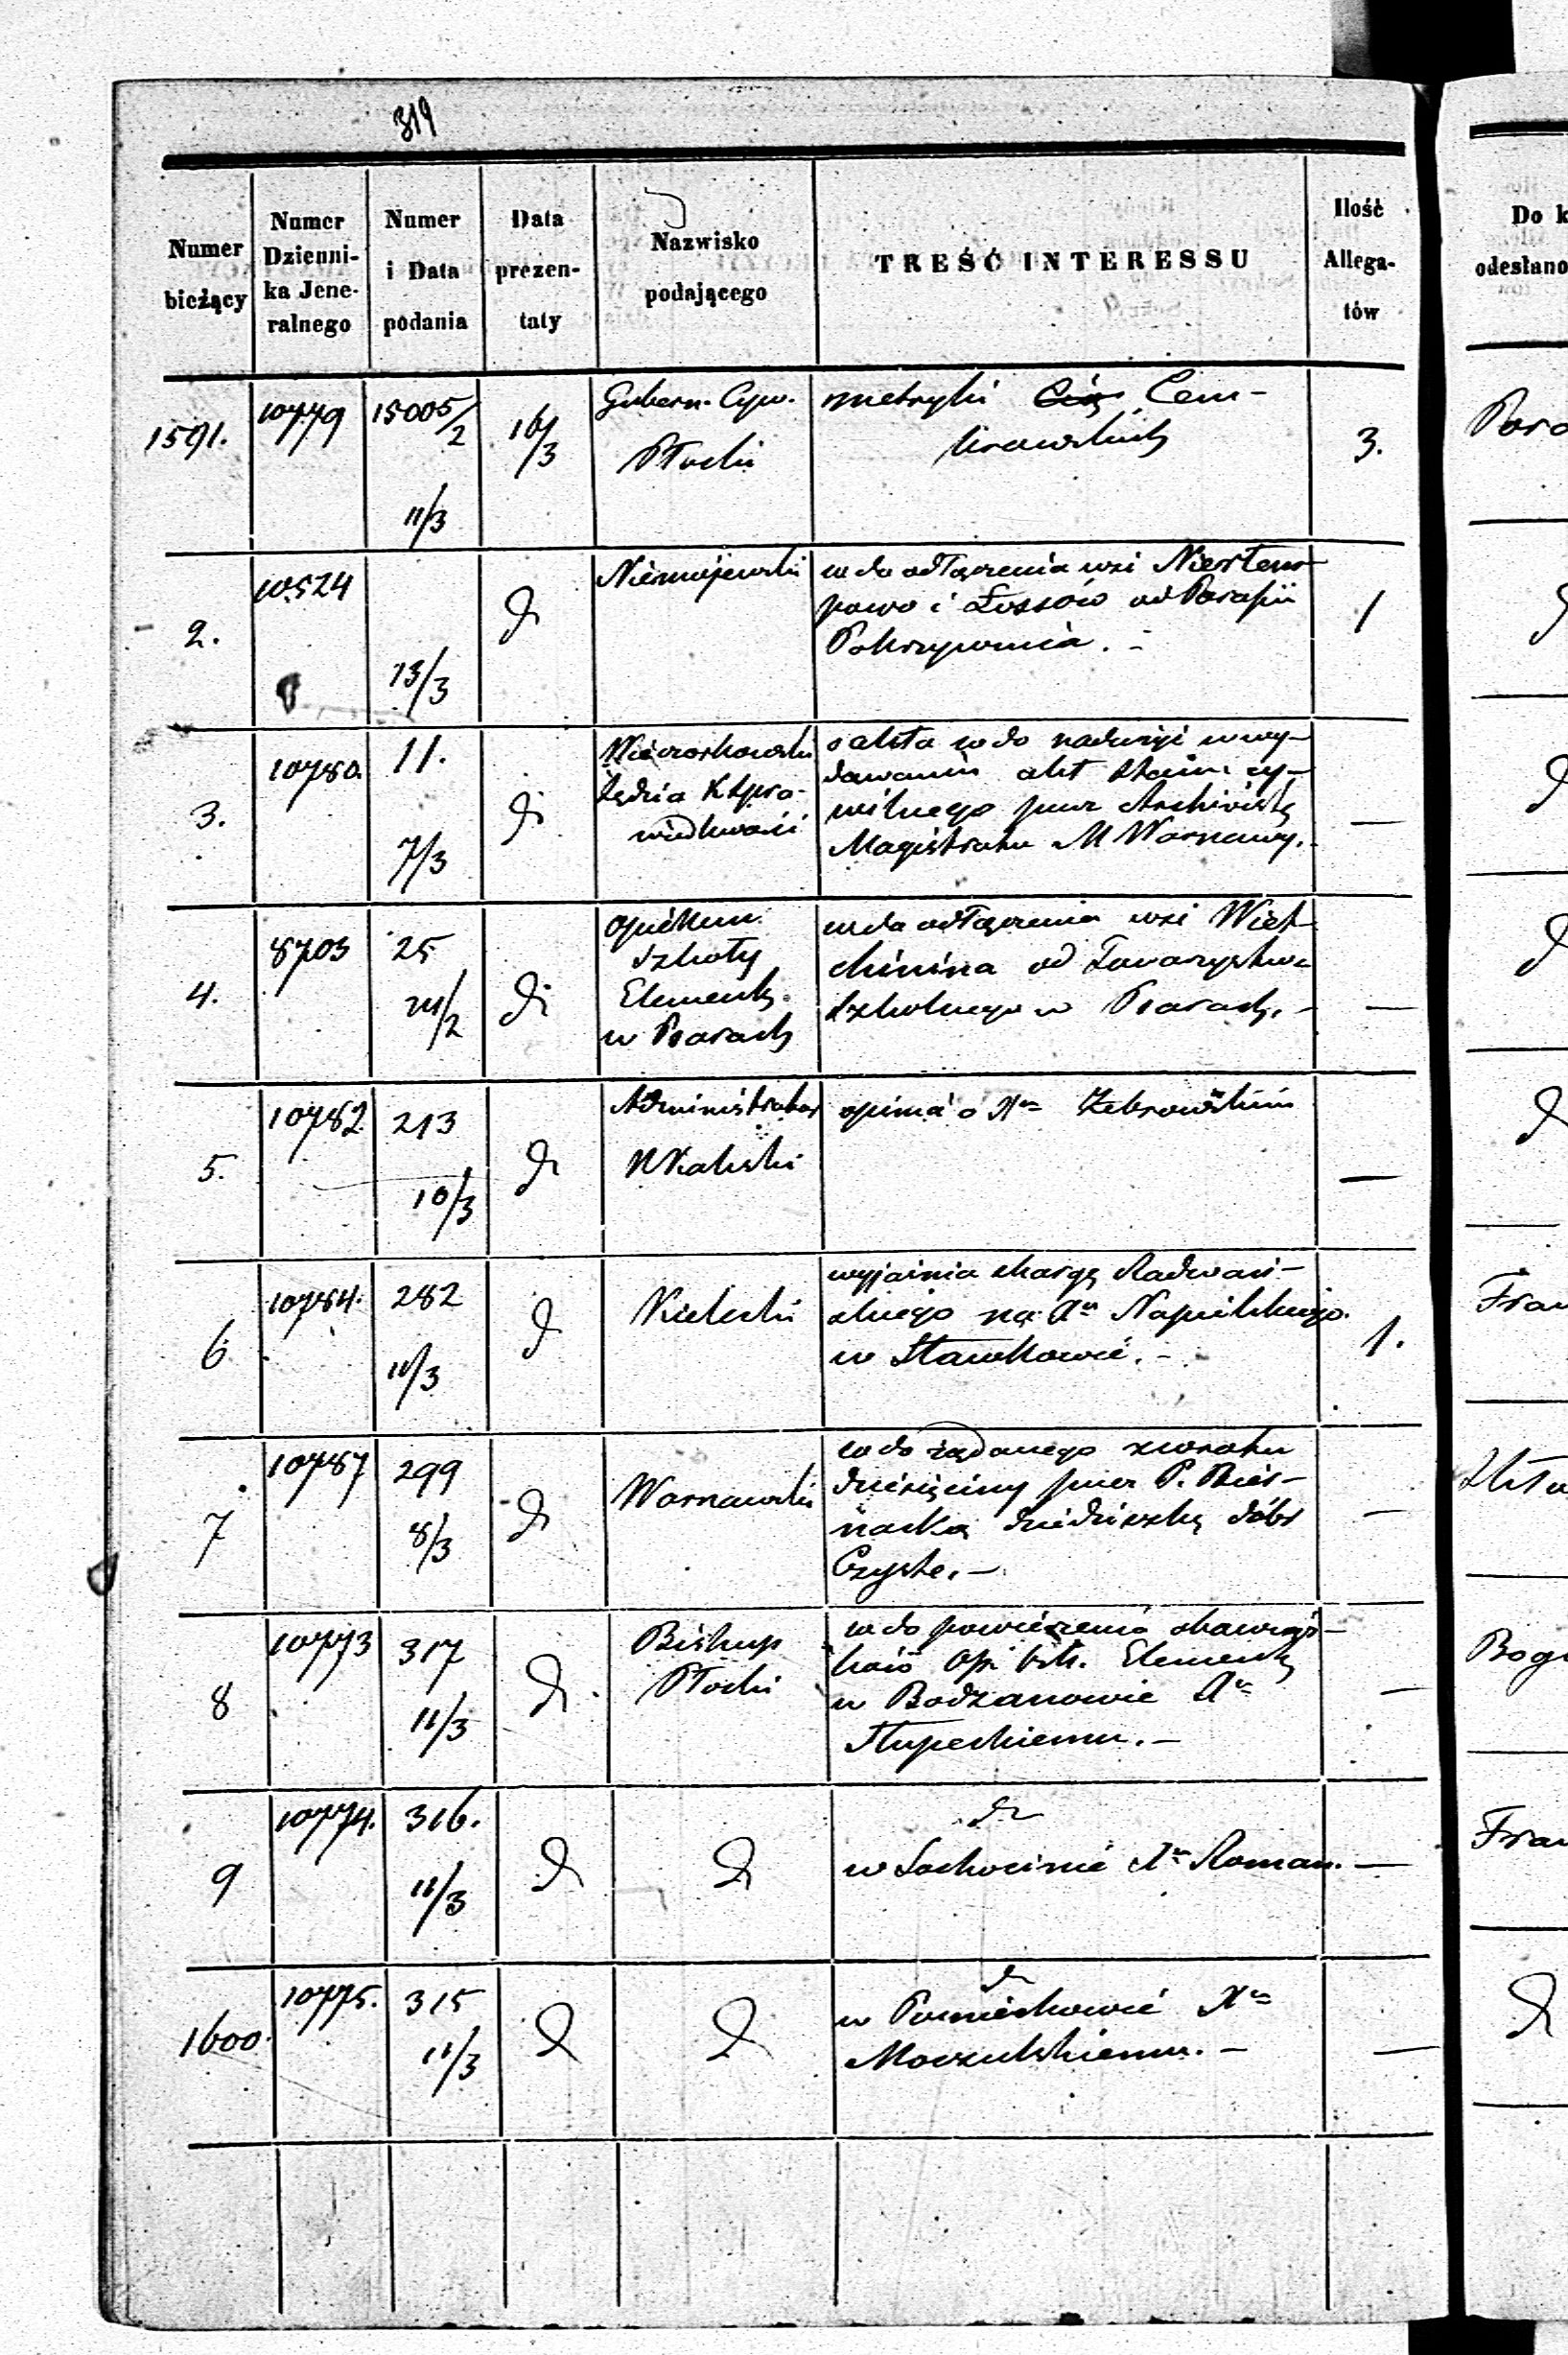 319
Numer bieżący
Numer Dzienni- ka Jene- ralnego
Numer i Data podania
Data prezen- taty
Nazwisko podającego
TREŚĆ INTERESSU
Ilość Allega- tów
Do k
odesłano
1591.
10779
15005/2
11/3
16/3
Gubern. Cyw.
Płocki
metryki
3.
2.
10524
13/3
d
Niemojewski
wdo odłączenia wsi
powo i Łossów od Parafii
Pokrzywnica. -
1
3.
10780.
11.
7/3
d
wdo nadużyć w wy-
dawaniu akt stanu cy-
wilnego przez Archiwistę
Magistratu M Warszawy.
—
4.
8703
25
24/2
d
opiekun
szkoły
Elementa.
w Psarach
wdo odłączenia wsi
od Towarzystwa
szkolnego w Psarach. -
—
5.
10782
213
10/3
d
Administrator
Kaliski
opinia o Xu Żebrowskim
—
6
10784.
282
11/3
d
Kielecki
wyjaśnia skargę Radwań-
skiego na Xa
w Sławkowie. -
1.
Fran
7
10787
299
8/3
d
Warszawski
wdo żądanego zwrotu
dziesięciny przez P.
dziedziczkę dóbr
Czyste. -
—
8
10773
317
11/3
d
Biskup
Płocki
wdo powierzenia obowiąz-
Elementa
w Bodzanowie Xu
Słupeckiemu. -
—
Bog
9
10774.
316.
11/3
d
d
d
w Sochocinie Xu Roman.
—
Fran
1600.
10775.
315
11/3
d
d
d
w Pomiechowie Xu
Moczulskiemu. -
—
d